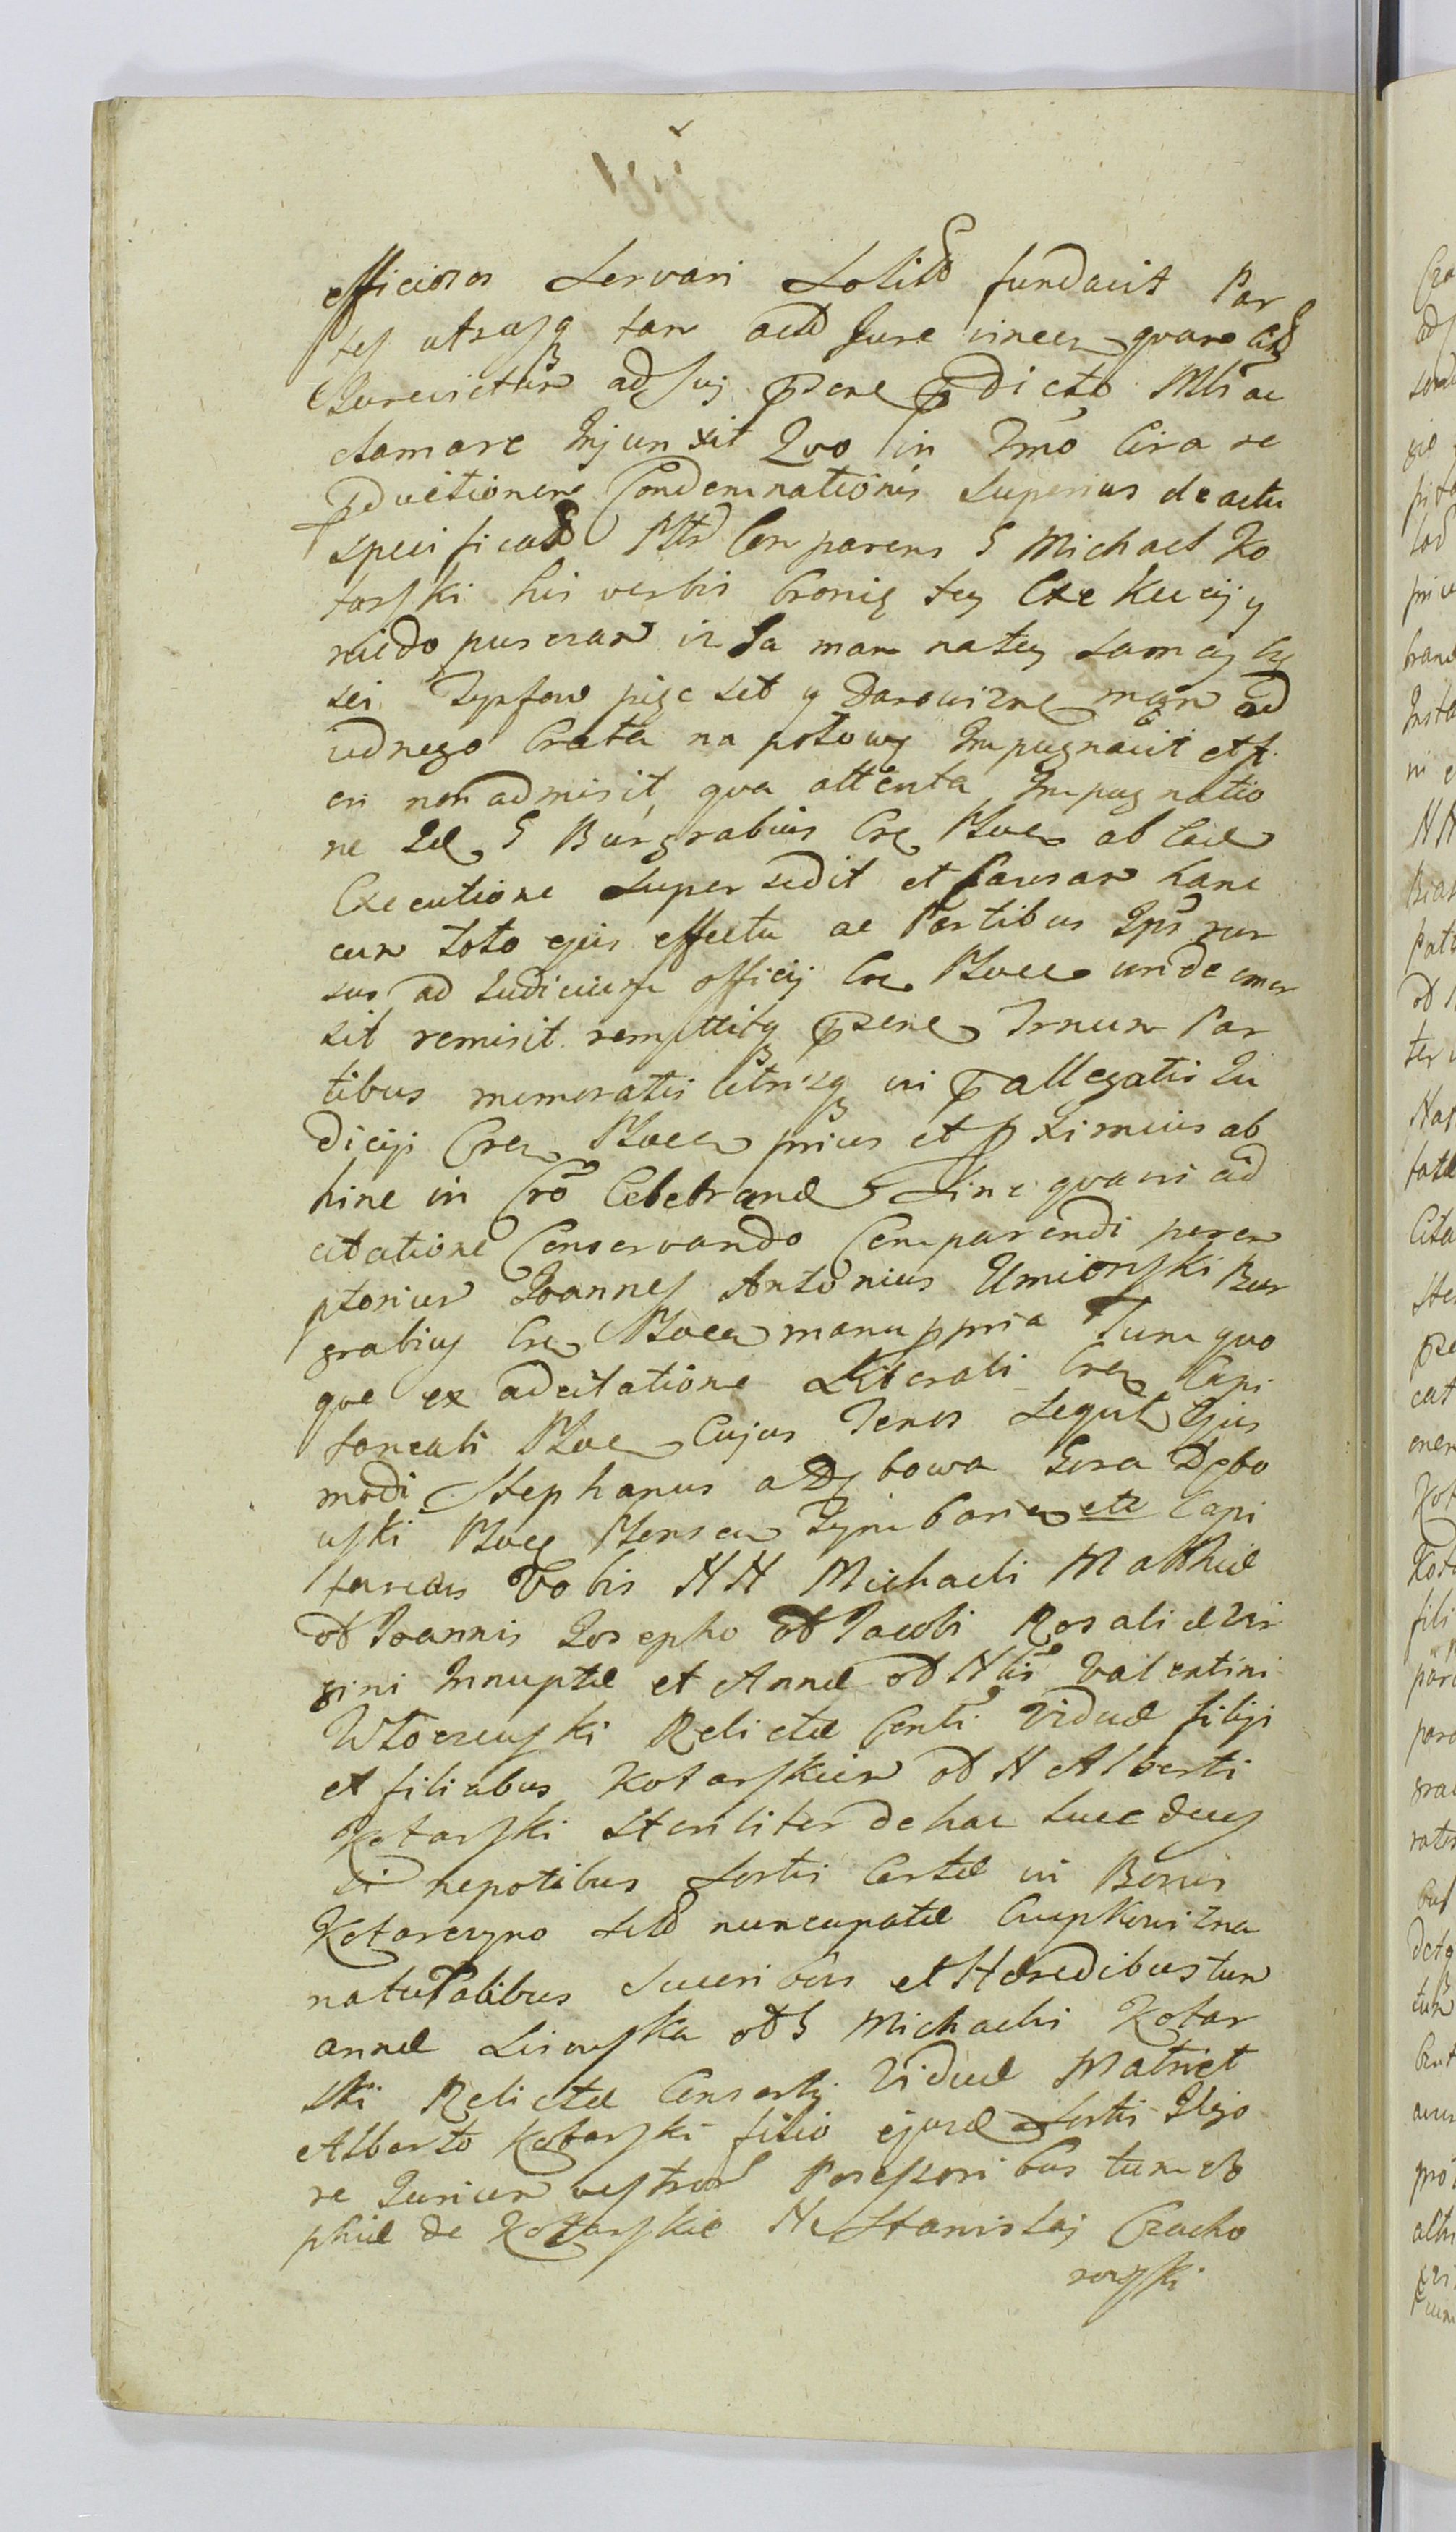 officiosos servari solitis fundavit Par
tes utrasq tam actu Jure vincen quam Citt
Jurevictum ad sui psene pdicto Mtri ac
clamare Injunxit Quo in Tmo Circa re
pductionem Condemnationis superius de actu
specificat Mtd Comparens G Michael Ko
tarski his verbis bronię tey Exekucij y
niedopuszczam iz Ja mam na tey samey Czę
sci Tynfow pięc set y Darowiznę mam od
iednego brata na połowę Impugnavit et fi
eri non admisit, qua attenta Impugnatio
ne Idem G Burgrabius Cre Ploce ab Ead
Executione supersedit et Causam hanc
cum toto ejus effectu ac Partibus Ipsis rur
sus ad Judicium officij Cre Plocen unde emer
sit remisit remittitq psene Trnum Par
tibus memoratis utrisq in pallegatis Ju
dicijs Cren Plocen prius et pximius ab
hinc in Cro Celebrand Sine quavis ad
citatione Conservando Comparendi perem
ptorium Joannes Antonius Umionski Bur
grabius Cre Plocen manu ppria Tum quo
que ex adcitatione Literali Cren Capi
taneali Ploce Cujus Tenor sequit Ejus
modi Stephanus a Dębowa Gora Dębo
wski Ploce Plonscen Zymborien etc Capi
taneus Vobis NN Michaeli Matthiæ
ol Joannis Josepho ol Jacobi Rosaliæ Vir
gini Innuptæ et Annæ ol Nlis Valentini
Wloczewski Relictæ Conthi Viduæ filijs
et filiabus Kotarskien ol N Alberti
Kotarski steriliter de hac luce deces
si nepotibus sortis Certæ in Bonis
Kotarczyno sitt nuncupatæ Czupkowizna
naturalibus successoribus et Hæredibus tum
annæ Lisowska ol G Michaelis Kotar
ski Relictæ Consorti Viduæ Matri et
Alberto Kotarski filio ejusd sortis Vigo
re Jurium vestror Possessoribus tum So
phiæ de Kotarskie N Stanislai Czacho
rowski